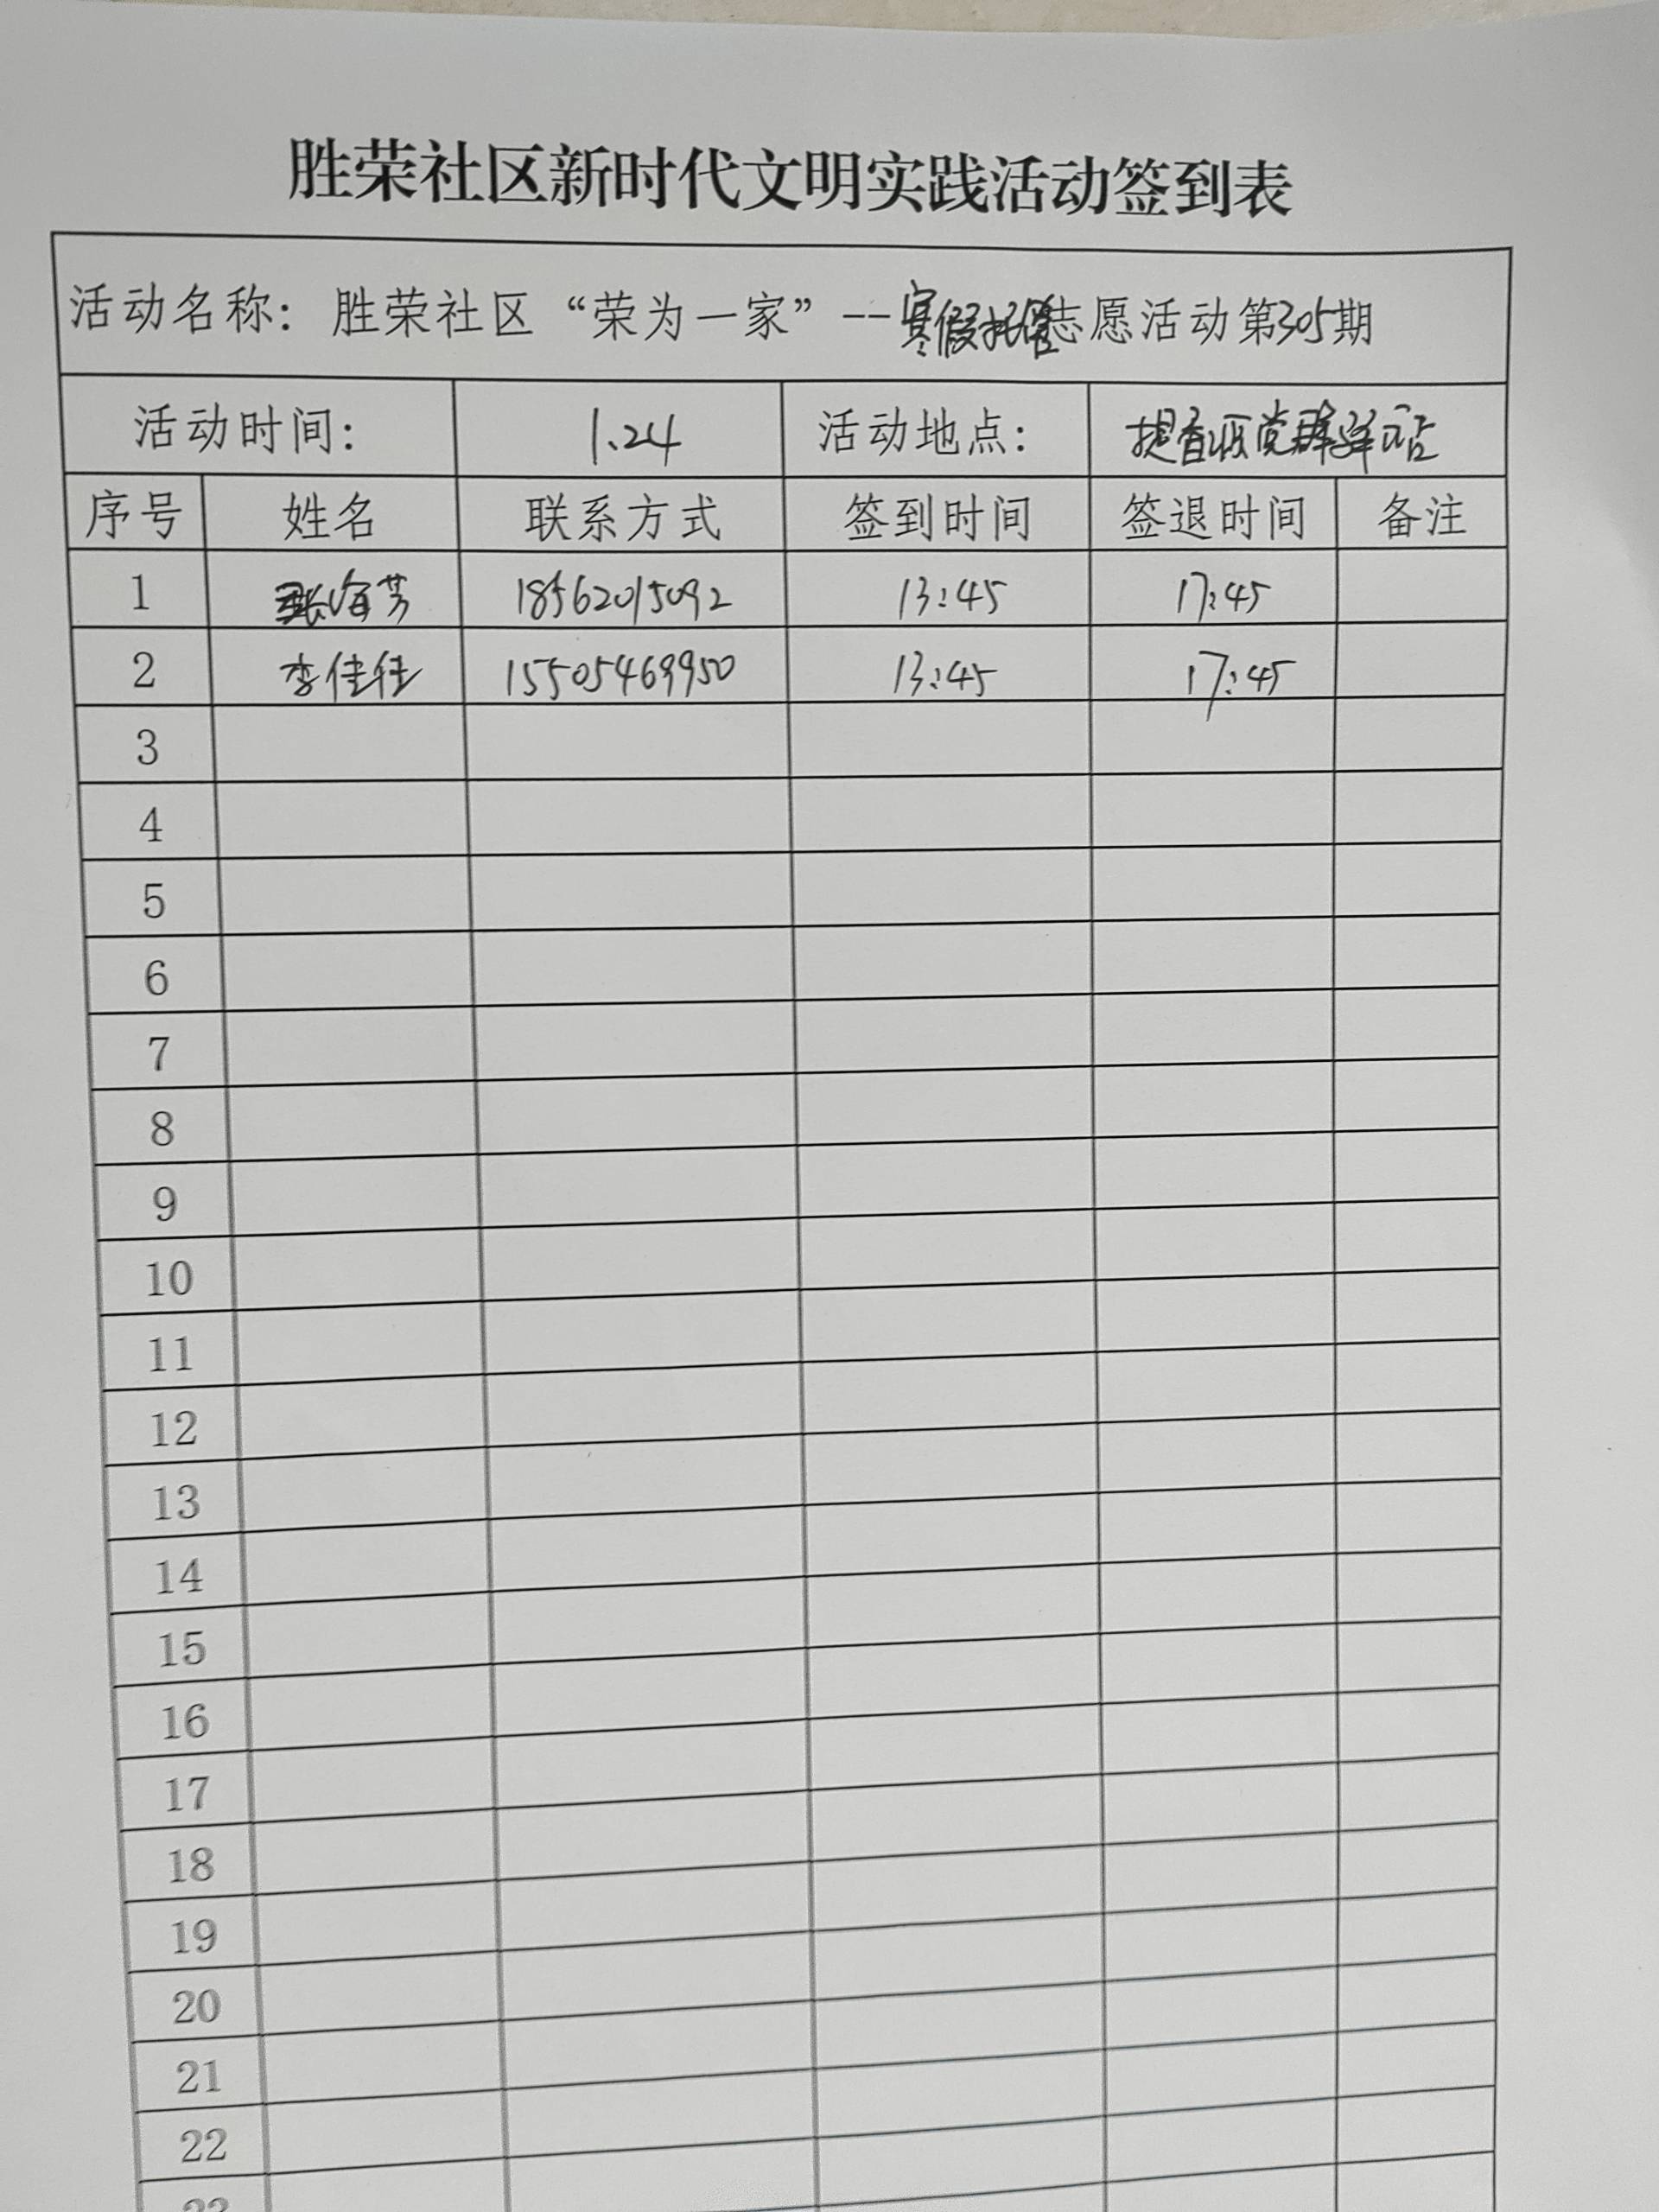 胜荣社区新时代文明实践活动签到表
活动名称：胜荣社区“荣为一家”--寒假托管志愿活动第305期
活动时间： 1.24 活动地点： 党群驿站
序号 姓名 联系方式 签到时间 签退时间 备注
1 张海芳 18562015092 13:45 17:45
2 李佳佳 15505469950 13:45 17:45
3
4
5
6
7
8
9
10
11
12
13
14
15
16
17
18
19
20
21
22
23